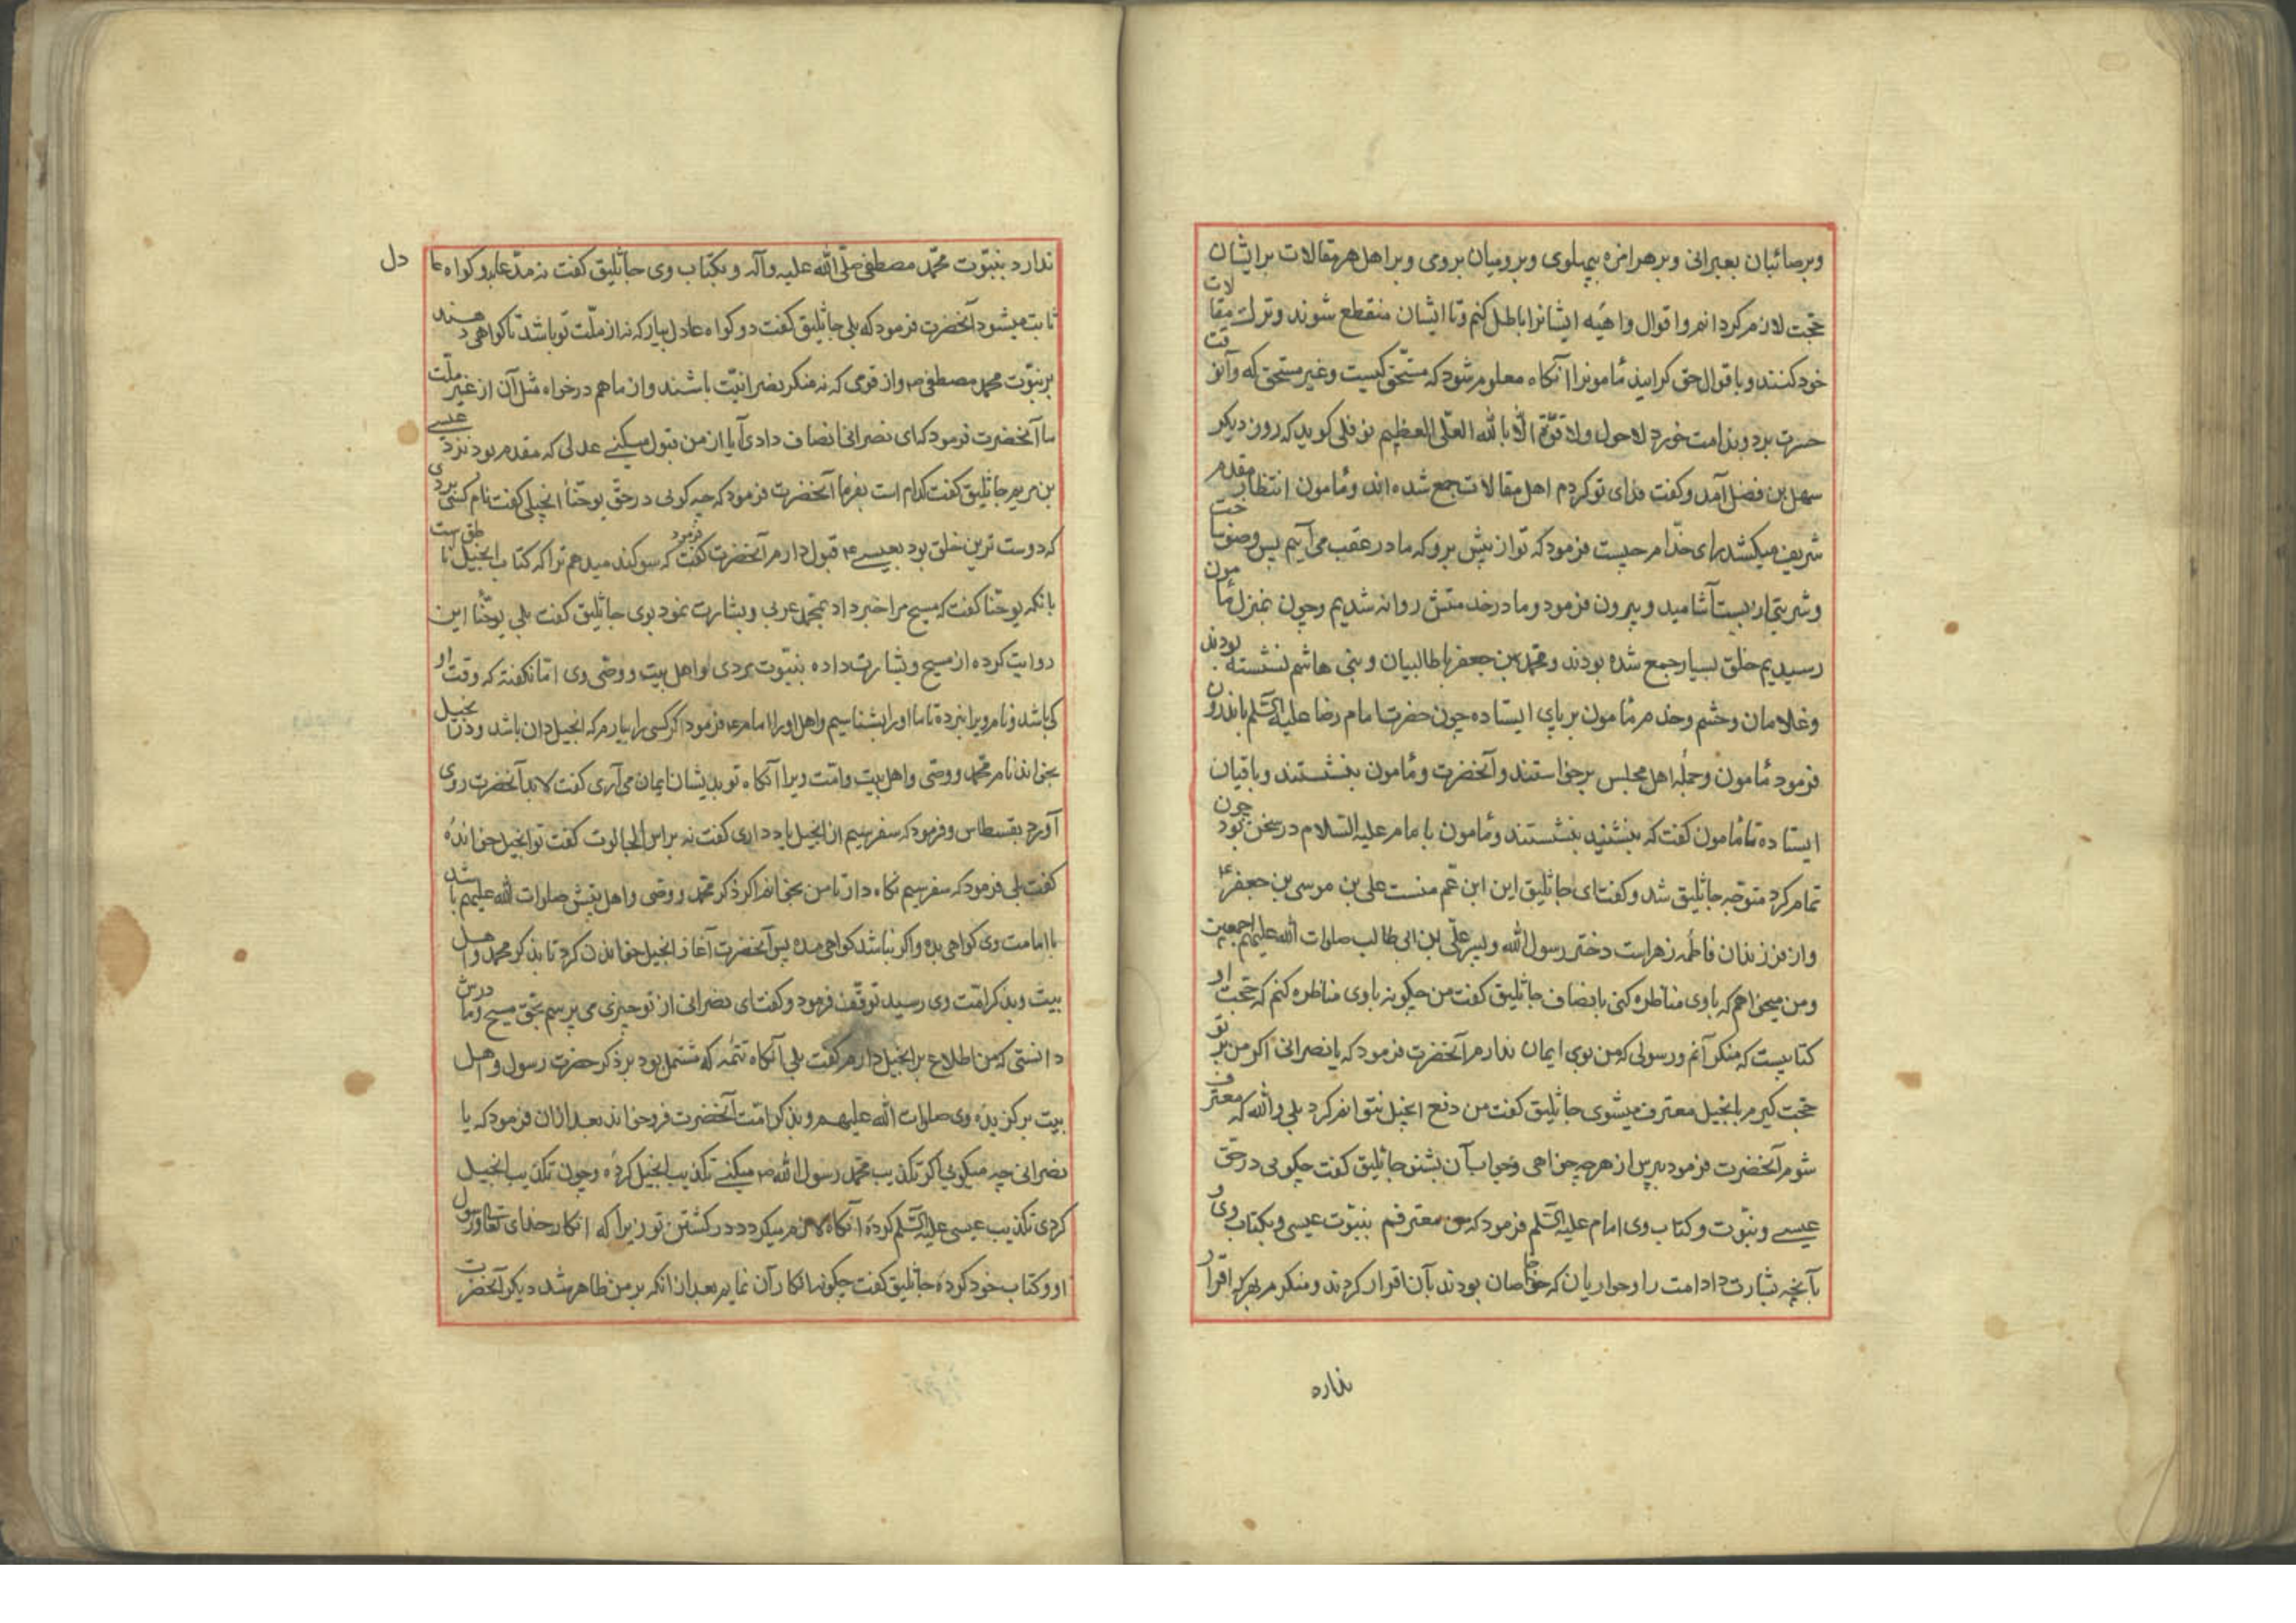 وبرصائبان بعبرانی وبرهرامزه بپهلوی وبرومیان برومی وبراهل هر مقالات برایشان
حجت لازم کردانم واقوال واهیه ایشانرا باطل کنم وتا ایشان منقطع شوند وترک مقالات
خود کنند وباقوال حق کرایند مأمونرا آنکاه معلوم شود که مستحق کیست وغیر مستحق که وآنوقت
حسرت برد وندامت خورد لاحول ولا قوّة الّا بالله العلّی العظیم نوفلی کوید که روز دیکر
سهل بن فضل آمد وکفت فدای تو کردم اهل مقالات جمع شده اند ومأمون انتظار مقدم
شریف میکشد رای خدّام چیست فرمود که تو از پیش برو که ما در عقب می آییم پس وضو ساخت
وشربتی از بست آشامید وبیرون فرمود وما در خدمتش روانه شدیم وچون بمنزل مأمون
رسیدیم خلق بسیار جمع شده بودند ومحمد بن جعفر باطالبیان وبنی هاشم نشسته بودند
وغلامان وحشم وخدم مأمون بر پای ایستاده چون حضرت امام رضا علیه السّلم باندرون
فرمود مأمون وجمله اهل مجلس برخواستند وآنحضرت ومأمون بنشستند وباقیان
ایستاده تا مأمون کفت که بنشنید بنشستند ومأمون با امام علیه السّلام در سخن بود چون
تمام کرد متوجّه جاثلیق شد وکفت ای جاثلیق این ابن عّم منست علی بن موسی بن جعفر ع
واز فرزندان فاطمه زهراست دختر رسول الله وپسر علّی ابن ابی طالب صلوات الله علیهم اجمعین
ومن میخواهم که با وی مناظره کنی بانصاف جاثلیق کفت من چکونه با وی مناظره کنم که حجّت او
کتابیست که منکر آنم ورسولی که من بوی ایمان ندارم آنحضرت فرمود که یا نصرانی اکر من بر تو
حجت کیرم بانجیل معترف میشوی جاثلیق کفت من دفع انجیل نتوانم کرد بلی والله که معترف
شوم آنحضرت فرمود بپرس از هر چه خواهی وجواب آن بشنو جاثلیق کفت چکویی در حقّ
عیسے ونبّوت وکتاب وی امام علیه السّلم فرمود که من معترفم بنبّوت عیسی وبکتاب وی و
بآنچه بشارت داد امت را وحواریان که خواصان بودند بآن اقرار کردند ومنکرم بهر که اقرار
نداره
ندارد بنبّوت محّمد مصطفی صلّی الله علیه وآله وبکتاب وی جاثلیق کفت نه مدّعا بدو کواه عادل
ثابت میشود آنحضرت فرمود که بلی جاثلیق کفت دو کواه عادل بیار که نه از ملّت تو باشد تا کواهی دهند
بر نبّوت محمد مصطفی ص واز قومی که نه منکر نصرانیّت باشند واز ما هم درخواه مثل آن از غیر ملّت
ما آنحضرت فرمود که ای نصرانی انصاف دادی آیا از من قبول میکنے عدلی که مقدم بود نزد عیسے
بن مریم جاثلیق کفت کدام است بفرما آنحضرت فرمود که چه کویی در حقّ یوحّنا انجیلی کفت نام کسی بردی
که دوست ترین خلق بود بعیسے ع قبول دارم آنحضرت کفت فرمود که سوکند میدهم ترا که کتاب انجیل ناطق ست
بانکه یوحّنا کفت که مسیح مرا خبر داد بمحّمد عربی وبشارت نمود بوی جاثلیق کفت بلی یوحّنا این
روایت کرده از مسیح وبشارت داده بنبّوت مردی واهل بیت ووصی وی امّا نکفته که وقت او
کی باشد ونام ویرا نبرده تا ما او را بشناسیم واهل او را امام ع فرمود اکر کسی را بیارم که انجیل دان باشد ودر انجیل
بخواند نام محّمد ووصّی واهل بیت وامّت ویرا آنکاه تو بدیشان ایمان می آری کفت لابد آنحضرت روی
آورد بقسطاس وفرمود که سفر سیم از انجیل یاد داری کفت نه براس الجالوت کفت تو انجیل خوانده
کفت بلی فرمود که سفر سیم نکاه دار تا من بخوانم اکر ذکر محّمد ووصّی واهل بیتش صلوات الله علیهم باشد
باامامت وی کواهی بده واکر نباشد کواهی مده پس آنحضرت آغاز انجیل خواندن کرد تا بذکر محمد واهل
بیت وبذکر امّت وی رسید توقّف فرمود وکفت ای نصرانی از تو چیزی می پرسم بحّق مسیح ومادرش
دانستی که من اطلاع بر انجیل دارم کفت بلی آنکاه تتّمه که مشتمل بود بر ذکر حضرت رسول واهل
بیت برکزیده وی صلوات الله علیهم وبذکر امّت آنحضرت فروخواند بعد ازان فرمود که یا
نصرانی چه میکویی اکر تکذیب محّمد رسول الله ص میکنے تکذیب انجیل کردۀ وچون تکذیب انجیل
کردی تکذیب عیسی علیه السّلم کردۀ آنکاه لازم میکردد در کشتن تو زیرا که انکار خدای تعالی ورسول
او وکتاب خود کردۀ جاثلیق کفت چکونه انکار آن نمایم بعد از انکه بر من ظاهر شد دیکر آنحضرت